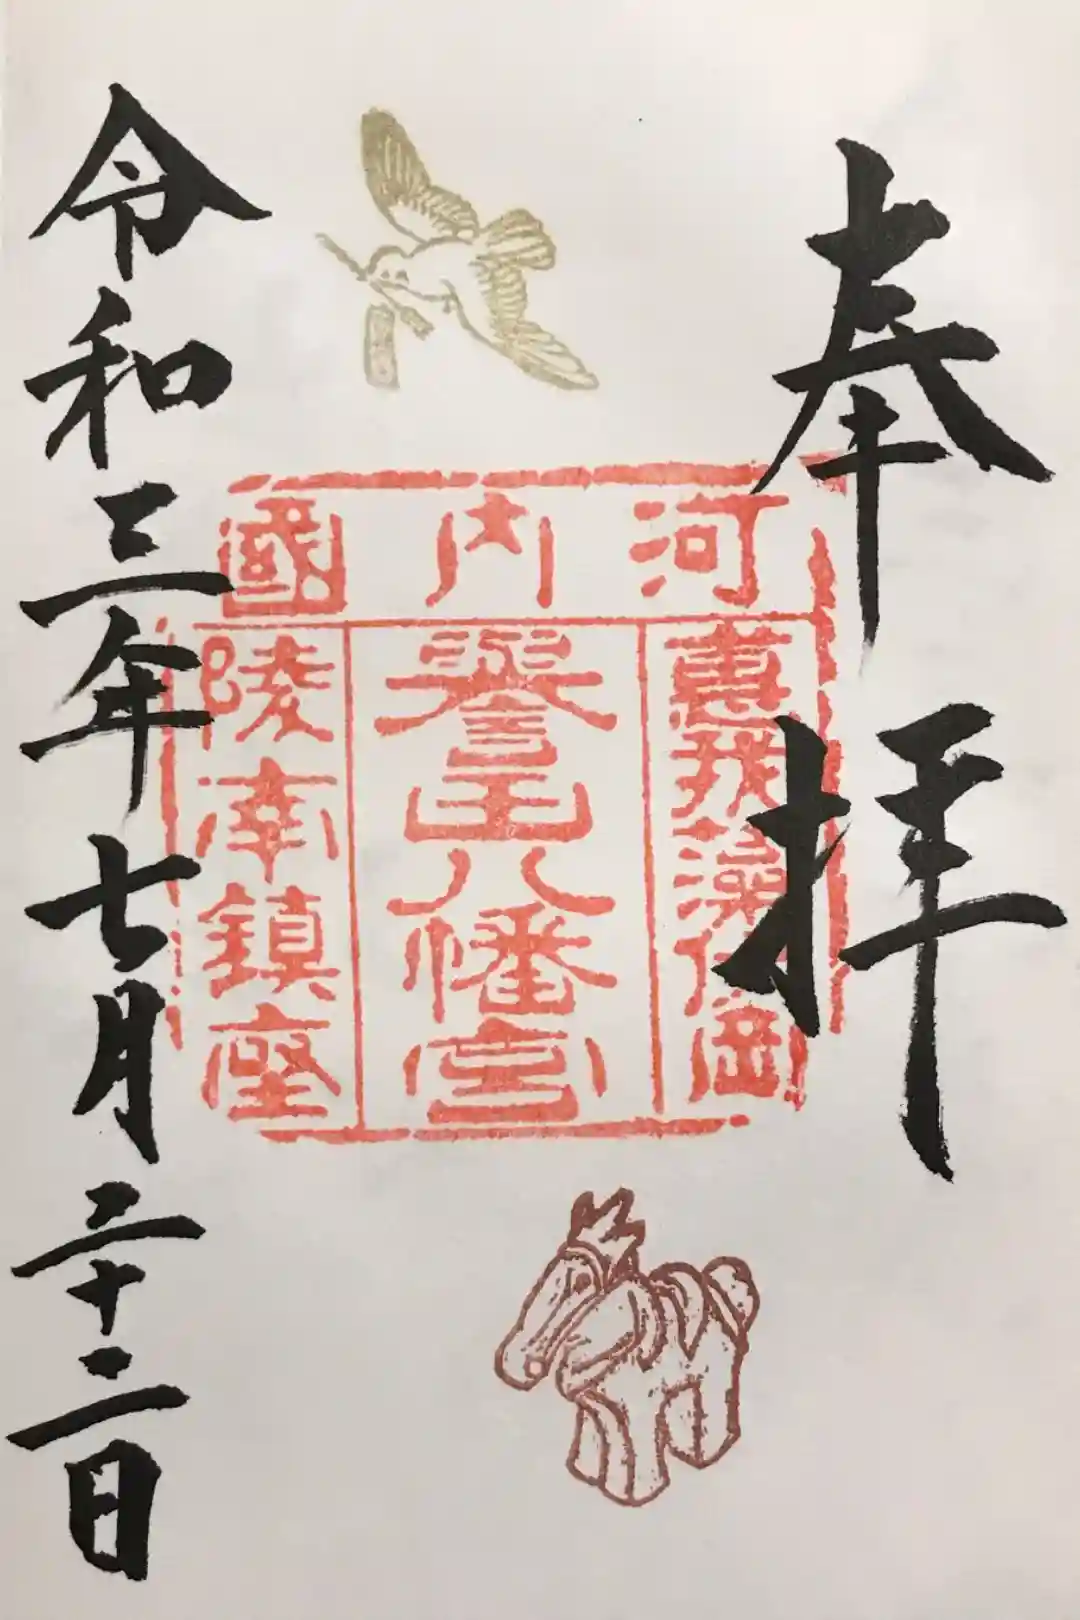 奉拝
河内國
惠我藻伏岡
誉田八幡宮
陵南鎮座
令和三年七月二十二日